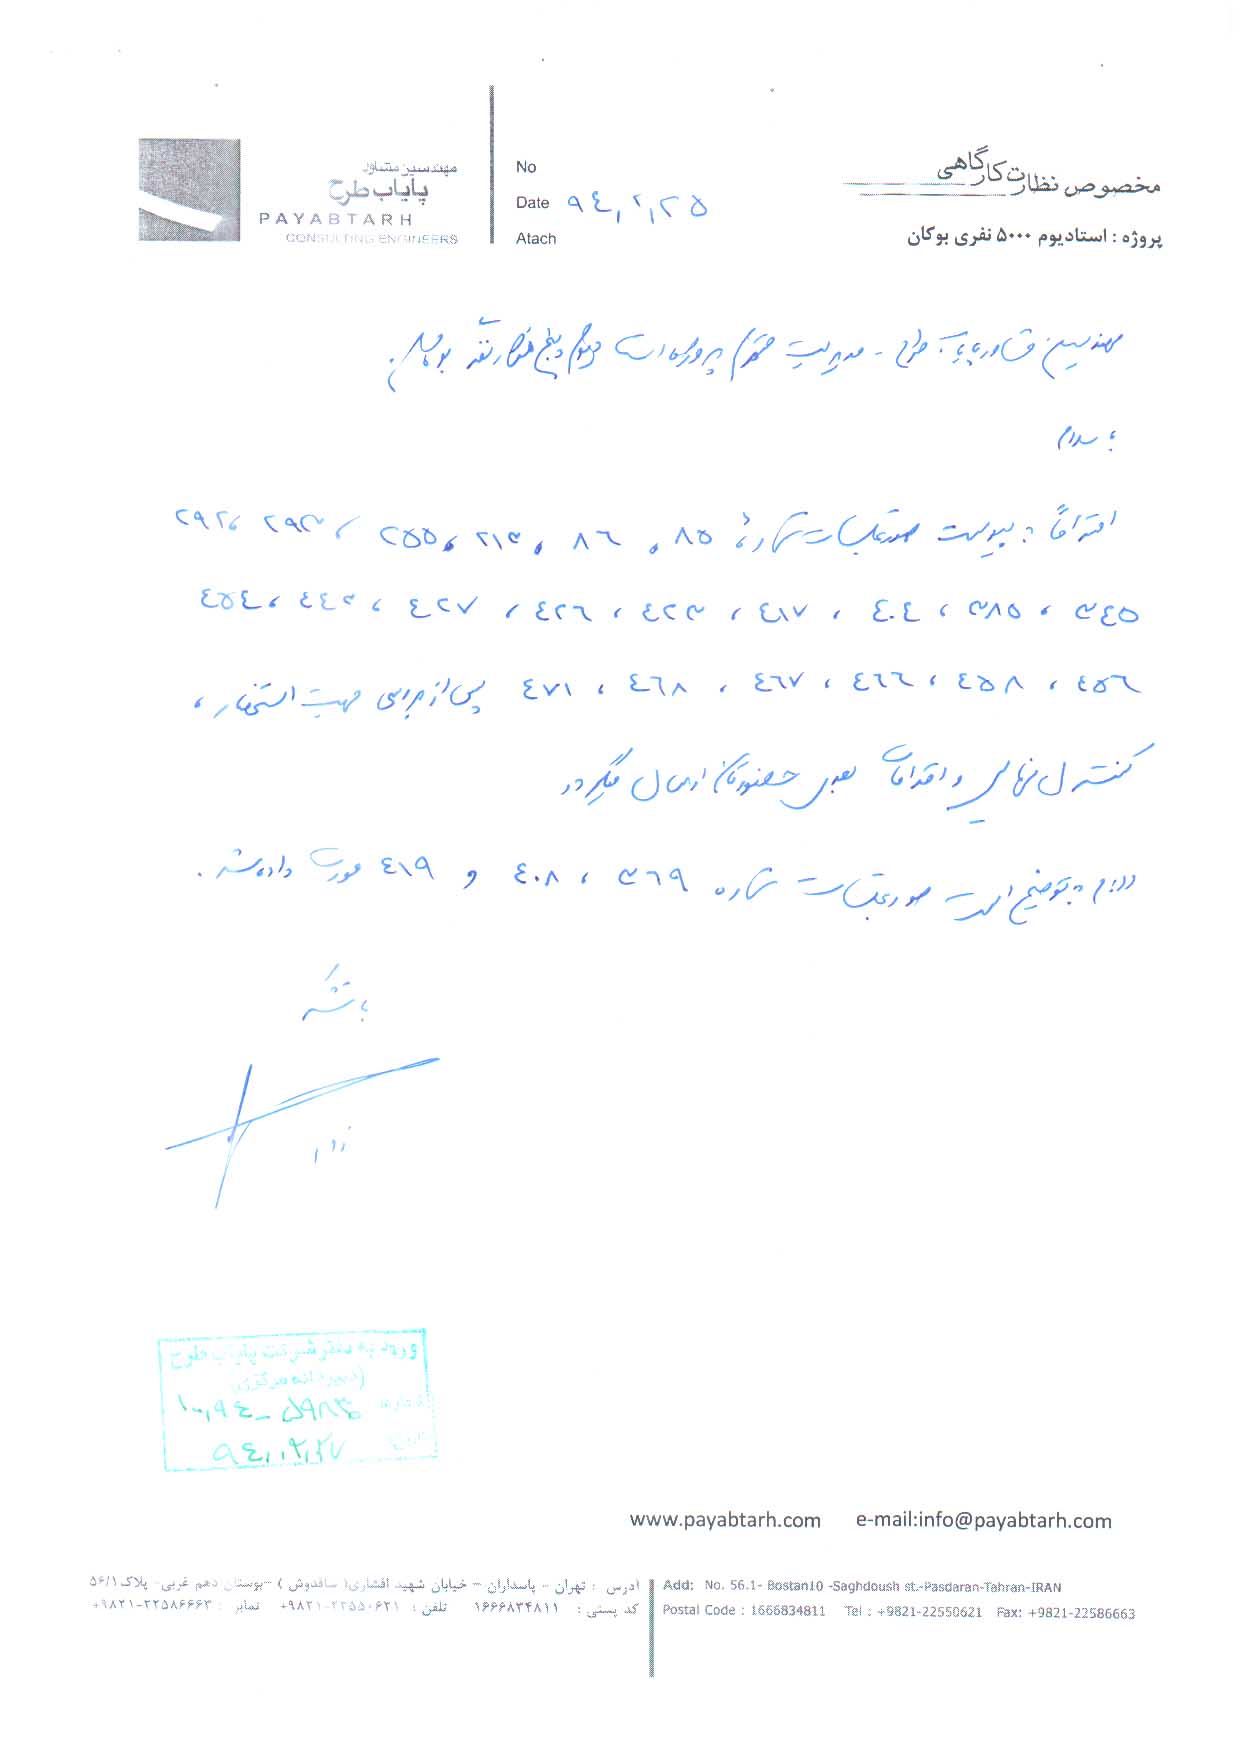 مهندسین مشاور
پایاب طرح
PAYABTARH
CONSULTING ENGINEERS
No
Date ۹٤,۲,۲۵
Atach
مخصوص نظارت کارگاهی
پروژه : استادیوم ۵۰۰۰ نفری بوکان
مهندسین مشاور پایاب طرح - مدیریت محترم پروژه استادیوم پنج هزار نفری بوکان.
با سلام
احتراماً به پیوست صورتجلسات شماره ۸۵ ، ۸٦ ، ۲۱۳ ، ۲۵۵ ، ۲۹۳ ، ۲۹۲ ،
۳٤۵ ، ۳۸۵ ، ٤۰٤ ، ٤۱۷ ، ٤۲۳ ، ٤۲٦ ، ٤۲۷ ، ٤٤۳ ، ٤۵٤
٤۵٦ ، ٤۵۸ ، ٤٦٦ ، ٤٦۷ ، ٤٦۸ ، ٤۷۱ پس از بررسی جهت استحضار ،
کنترل نهایی و اقدامات بعدی حضورتان ارسال میگردد
لازم به توضیح است صورتجلسات شماره ۳٦۹ ، ٤۰۸ و ٤۱۹ عودت داده شد .
با تشکر
ورود به دفتر شرکت پایاب طرح
(دبیرخانه مرکزی)
شماره ۱۰,۹٤-۵۹۸۳
تاریخ ۹٤,۰۲,۲۷
www.payabtarh.com e-mail:info@payabtarh.com
آدرس : تهران - پاسداران - خیابان شهید افشاری( ساقدوش ) -بوستان دهم غربی- پلاک ۵۶/۱
کد پستی : ۱۶۶۶۸۳۴۸۱۱ تلفن : ۲۲۵۵۰۶۲۱-۹۸۲۱+ نمابر : ۲۲۵۸۶۶۶۳-۹۸۲۱+
Add: No. 56.1- Bostan10 -Saghdoush st.-Pasdaran-Tahran-IRAN
Postal Code : 1666834811 Tel : +9821-22550621 Fax: +9821-22586663